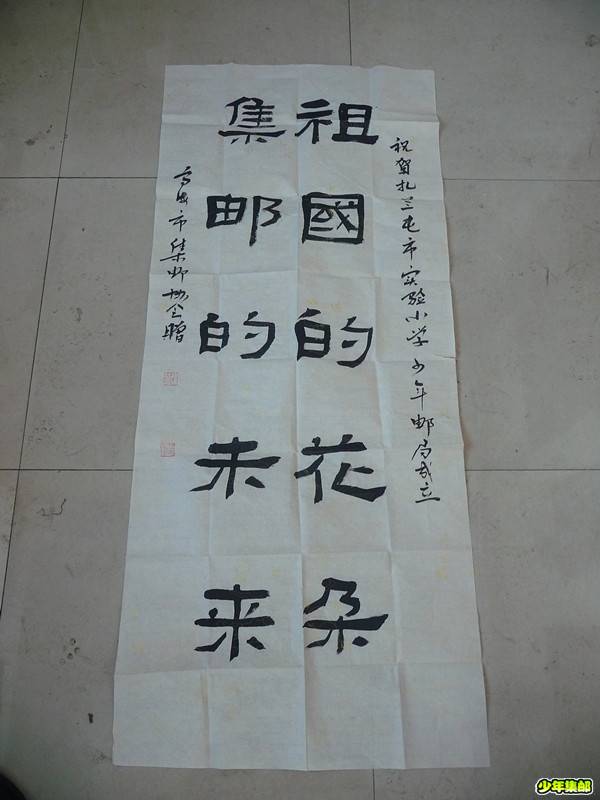 祝贺扎兰屯市实验小学少年邮局成立
祖國的花朵
集邮的未来
市集邮协会赠
少年集邮